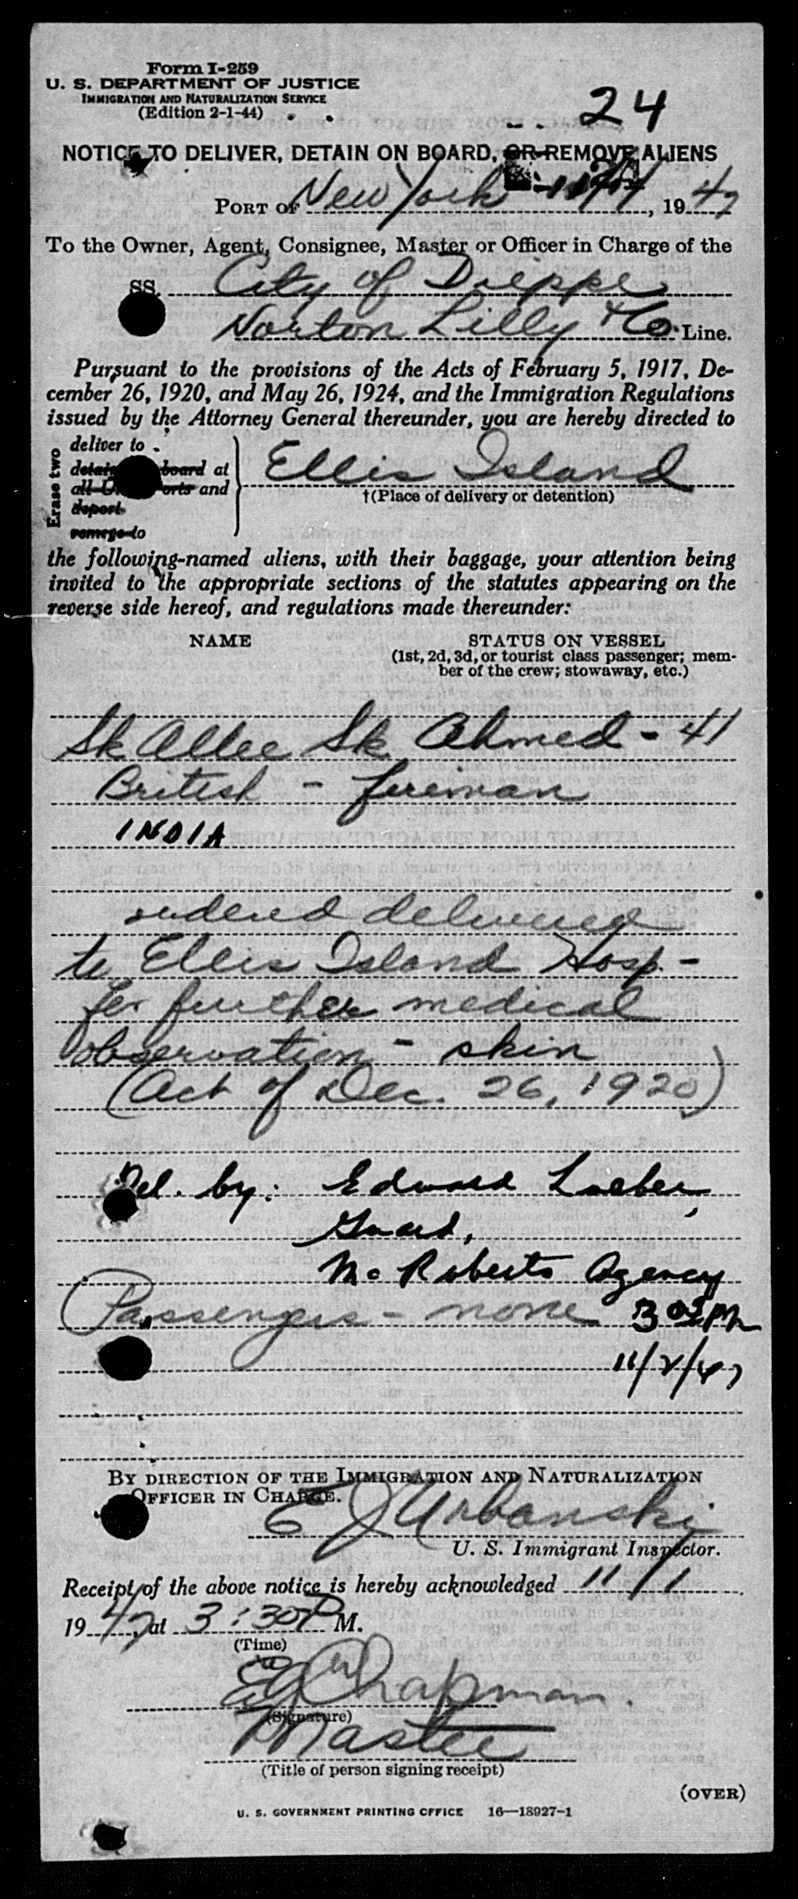 Form I-259
U. S. DEPARTMENT OF JUSTICE
IMMIGRATION AND NATURALIZATION SERVICE
(Edition 2-1-44)
24
NOTICE TO DELIVER, DETAIN ON BOARD, OR REMOVE ALIENS
PORT OF New York, 1947
To the Owner, Agent, Consignee, Master or Officer in Charge of the
SS. City of Dieppe
Norton Lilly & Co. Line.
Pursuant to the provisions of the Acts of February 5, 1917, De-
cember 26, 1920, and May 26, 1924, and the Immigration Regulations
issued by the Attorney General thereunder, you are hereby directed to
Erase two
deliver to
detain board at
all U. orts and
deport
remove to
Ellis Island
†(Place of delivery or detention)
the following-named aliens, with their baggage, your attention being
invited to the appropriate sections of the statutes appearing on the
reverse side hereof, and regulations made thereunder:
NAME STATUS ON VESSEL
(1st, 2d, 3d, or tourist class passenger; mem-
ber of the crew; stowaway, etc.)
Sk Allee Sk Ahmed - 41
British - fireman
INDIA
ordered delivered
to Ellis Island Hosp. -
for further medical
observation - skin
(Act of Dec. 26, 1920)
Del. by: Edward
Guard,
McRoberts Agency
Passengers - none 3 05 PM
11/2/47
BY DIRECTION OF THE IMMIGRATION AND NATURALIZATION
OFFICER IN CHARGE.
E J Urbanski
U. S. Immigrant Inspector.
Receipt of the above notice is hereby acknowledged 11/1
1947, at 3:30 P M.
(Time)
Chapman.
(Signature)
Master
(Title of person signing receipt)
(OVER)
U. S. GOVERNMENT PRINTING OFFICE 16—18927-1